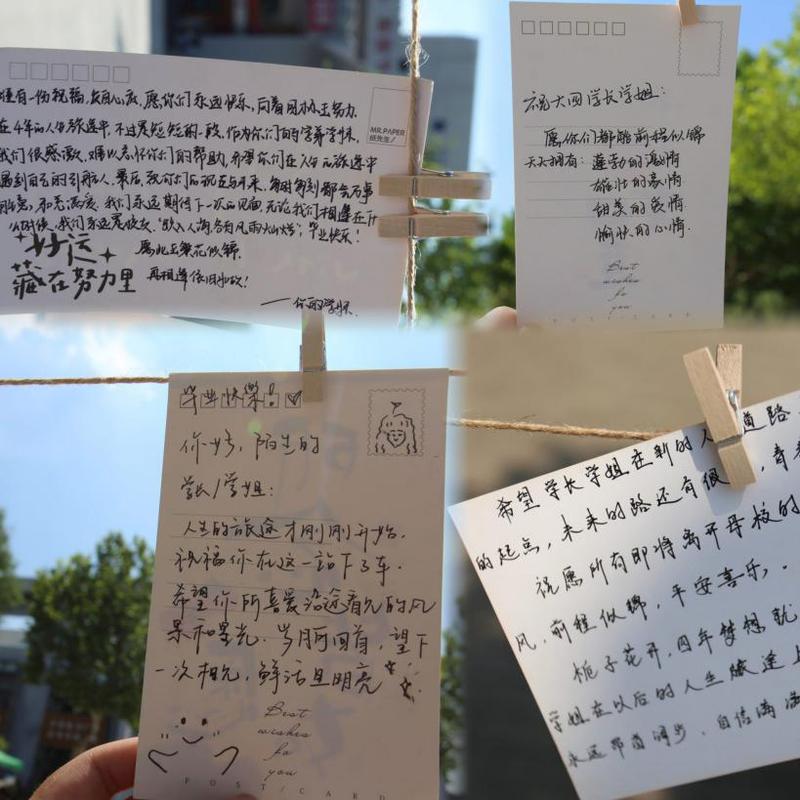 有一份祝福,发自心底,愿你们永远快乐,向着目标去努力.
在4年的人生旅途中,不过是短短的一段,作为你们的学弟学妹,
我们很感激,难以忘怀你们的帮助,希望你们在人生的旅途中
遇到自己的引路人,最后,祝你们后祝在与未来,每时每刻都会万事
胜意,和乐满处,我们永远期待下一次的见面,无论我们相遇在什
么时候,我们永远是校友."散入人海,各有风雨灿烂",毕业快乐!
好运
藏在努力里
愿此去繁花似锦.
再相逢依旧如故!
——你的学妹.
MR.PAPER
纸先生/
祝大四学长学姐:
愿你们都能前程似锦
天天拥有:蓬勃的激情
雄壮的豪情
甜美的爱情
愉快的心情.
Best
wishes
for
you
POST/CARD
毕业快乐!
你好,陌生的
学长/学姐:
人生的旅途才刚刚开始.
祝福你在这一站下了车.
希望你所喜爱沿途看见的风
景和星光.岁月回首,望下
一次相见,鲜活且明亮
Best
wishes
for
you
POST/CARD
希望学长学姐在新的人道路
的起点,未来的路还有很,青春
祝愿所有即将离开母校的
风,前程似锦,平安喜乐,.
栀子花开,四年梦想就
学姐在以后的人生旅途上
永远昂首阔步,自信满满